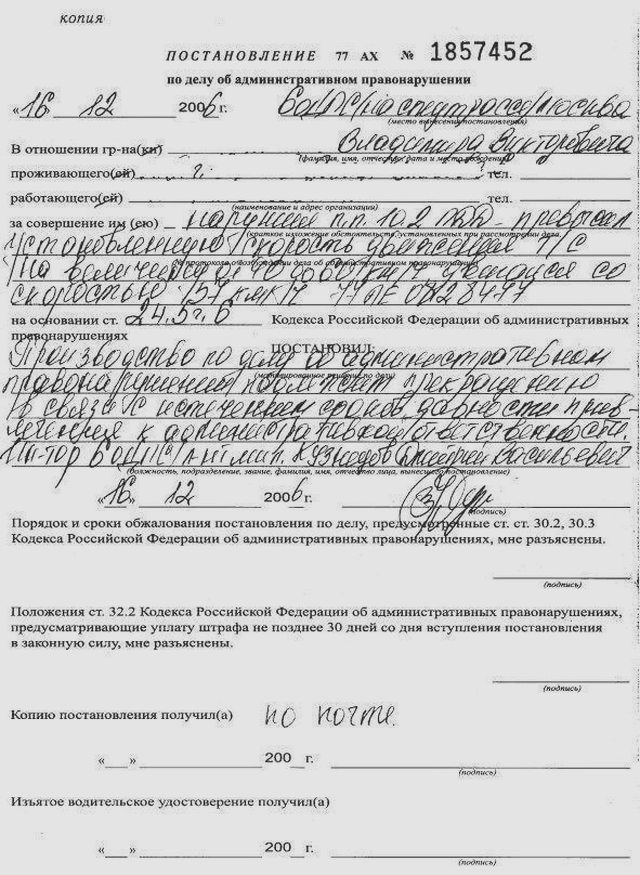 копия
ПОСТАНОВЛЕНИЕ 77 АХ № 1857452
по делу об административном правонарушении
«16» 12 2006 г. 6 б ДПС на спецтрассе г. Москва
(место вынесения постановления)
В отношении гр-на(ки) Владимира Викторовича
(фамилия, имя, отчество, дата и место рождения)
проживающего(ей) г. тел.
работающего(ей) тел.
(наименование и адрес организации)
за совершение им (ею) нарушил п.п. 10.2 ПДД превысил
(краткое изложение обстоятельств, установленных при рассмотрении дела,
установленную скорость движения Т/С
№ протокола о возбуждении дела об административном правонарушении)
на величину от 40 до 60 км/ч двигался со
скоростью 157 км/ч 77 ПЕ 0428477
на основании ст. 24.5 ч. 6 Кодекса Российской Федерации об административных
правонарушениях
ПОСТАНОВИЛ:
Производство по делу об административном
(мотивированное решение по делу)
правонарушении подлежит прекращению
в связи с истечением сроков давности прив-
лечения к административной ответственности.
Ин-тор 6 б ДПС Дмитрий Васильевич
(должность, подразделение, звание, фамилия, имя, отчество лица, вынесшего постановление)
«16» 12 2006 г.
Порядок и сроки обжалования постановления по делу, предусмотренные ст. ст. 30.2, 30.3
Кодекса Российской Федерации об административных правонарушениях, мне разъяснены.
(подпись)
Положения ст. 32.2 Кодекса Российской Федерации об административных правонарушениях,
предусматривающие уплату штрафа не позднее 30 дней со дня вступления постановления
в законную силу, мне разъяснены.
(подпись)
Копию постановления получил(а) по почте.
«__» 200 г.
(подпись)
Изъятое водительское удостоверение получил(а)
«__» 200 г.
(подпись)